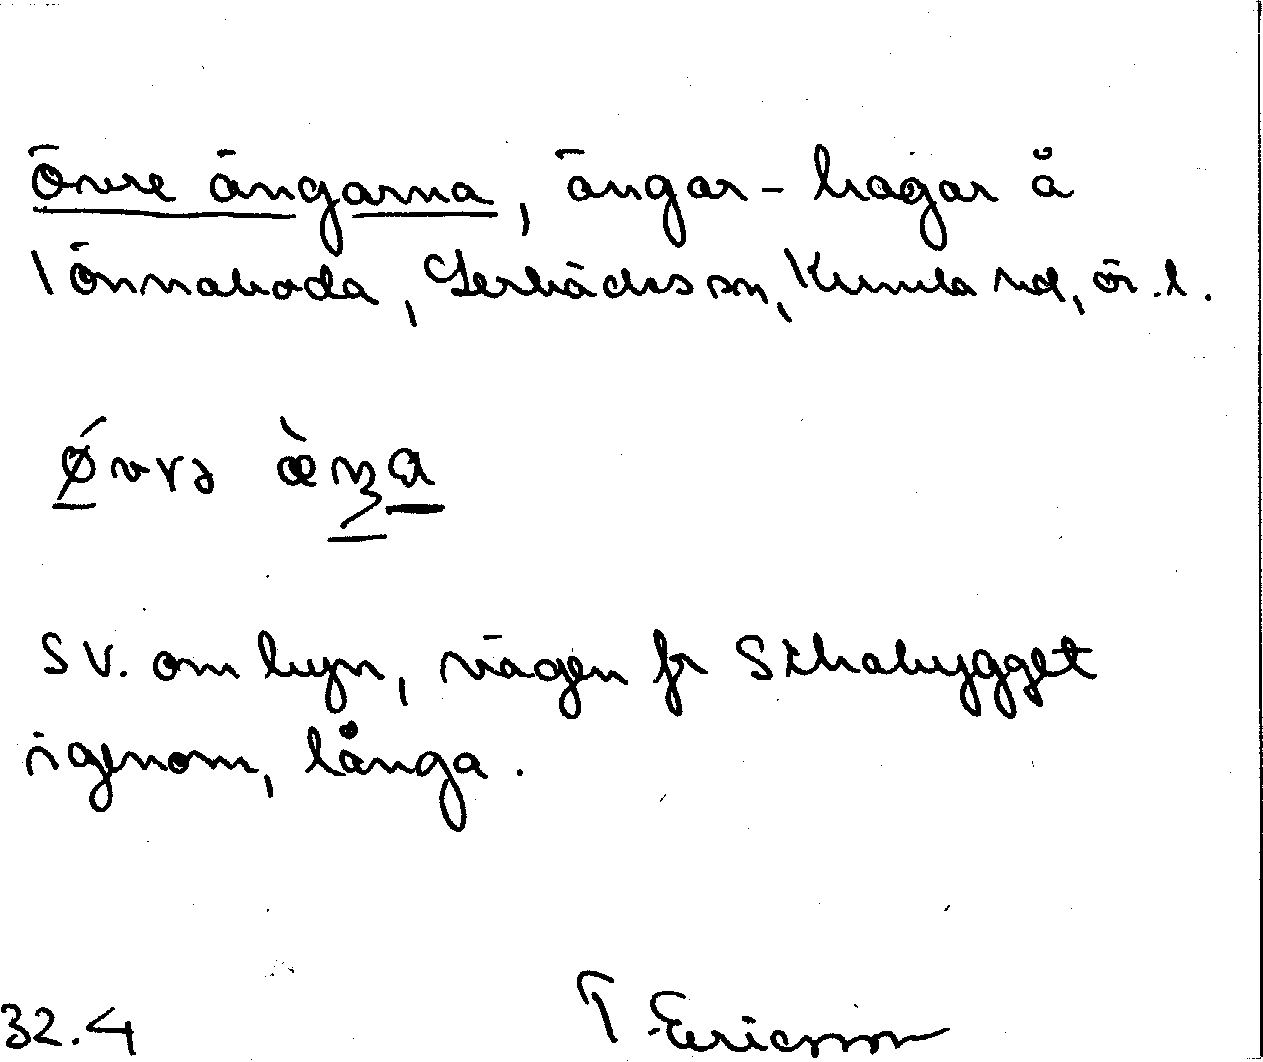 Övre ängarna, ängar-hagar å
Tönnaboda, Lerbäcks sn, Kumla hd, ör.l.
SV. om byn, vägen fr Skhabygget
igenom, långa.
32.4 T. Ericsson